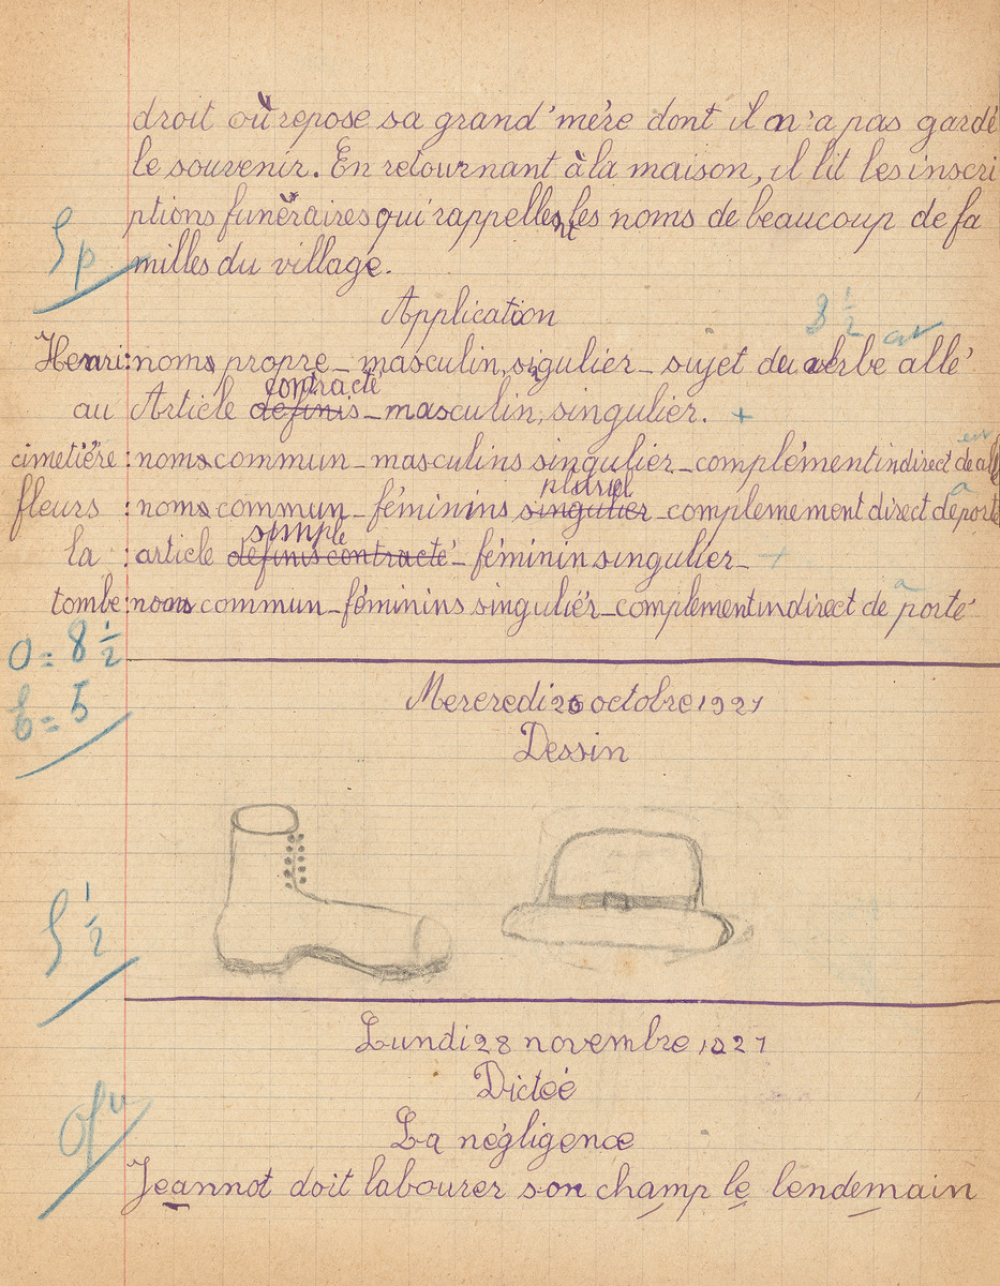 droit où repose sa grand'mère dont il n'a pas gardé
le souvenir. En retournant à la maison, il lit les inscri
ptions funéraires qui rappellent les noms de beaucoup de fa
milles du village.
Application
8 1/2
Henri: noms propre _ masculin, singulier _ sujet du verbe allé
er
contracté
au Article definis _ masculin, singulier. +
cimetière : noms commun _ masculins singulier _ complément indirect de all
er
pluriel
fleurs : noms commun _ féminins singulier _ complement direct de porté
a
simple
la : article definis contracté _ féminin singulier _ +
tombe: noms commun _ féminins singulier _ complement indirect de porté
a
O = 8 1/2
E = 5
Mercredi 26 octobre 1927
Dessin
1/2
Lundi 28 novembre 1927
Dictée
La négligence
Jeannot doit labourer son champ le lendemain